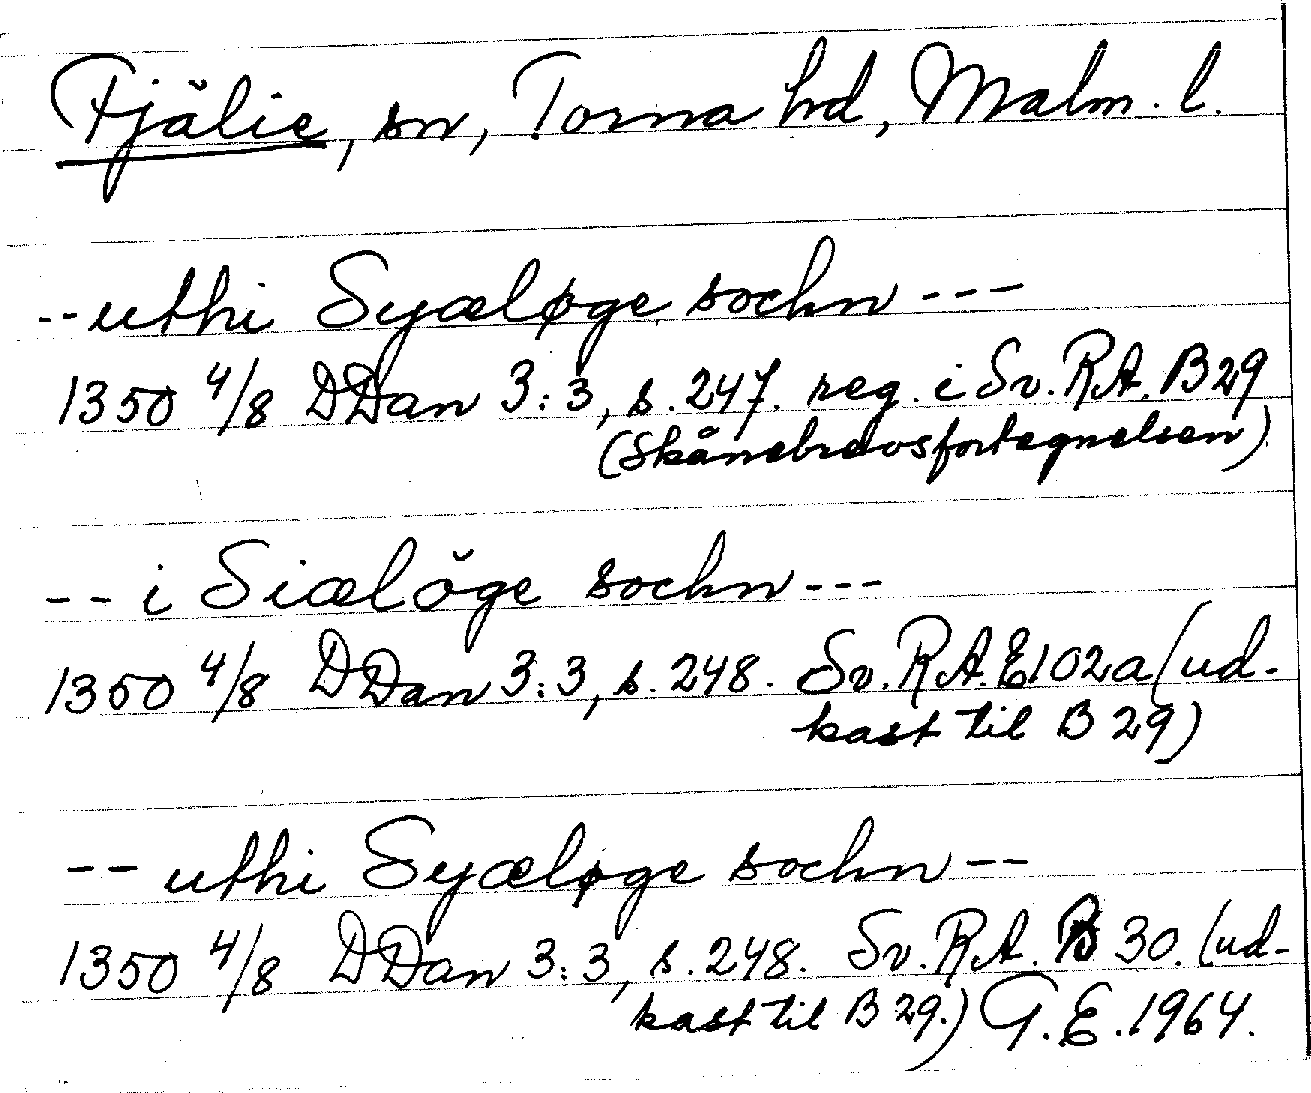 Fjälie, sn, Torna hd, Malm. l.
-- uthi Syæløge sochn ---
1350 4/8 DDan 3:3, s. 247. reg. i Sv. RA. B 29
(Skånebrevsfortegnelsen)
-- i Siælöge sochn ---
1350 4/8 DDan 3:3, s. 248. Sv. RA. E102a (ud-
kast til B 29)
-- uthi Syæløge sochn --
1350 4/8 DDan 3:3, s. 248. Sv. RA. B 30. (ud-
kast til B 29.) G. E. 1964.